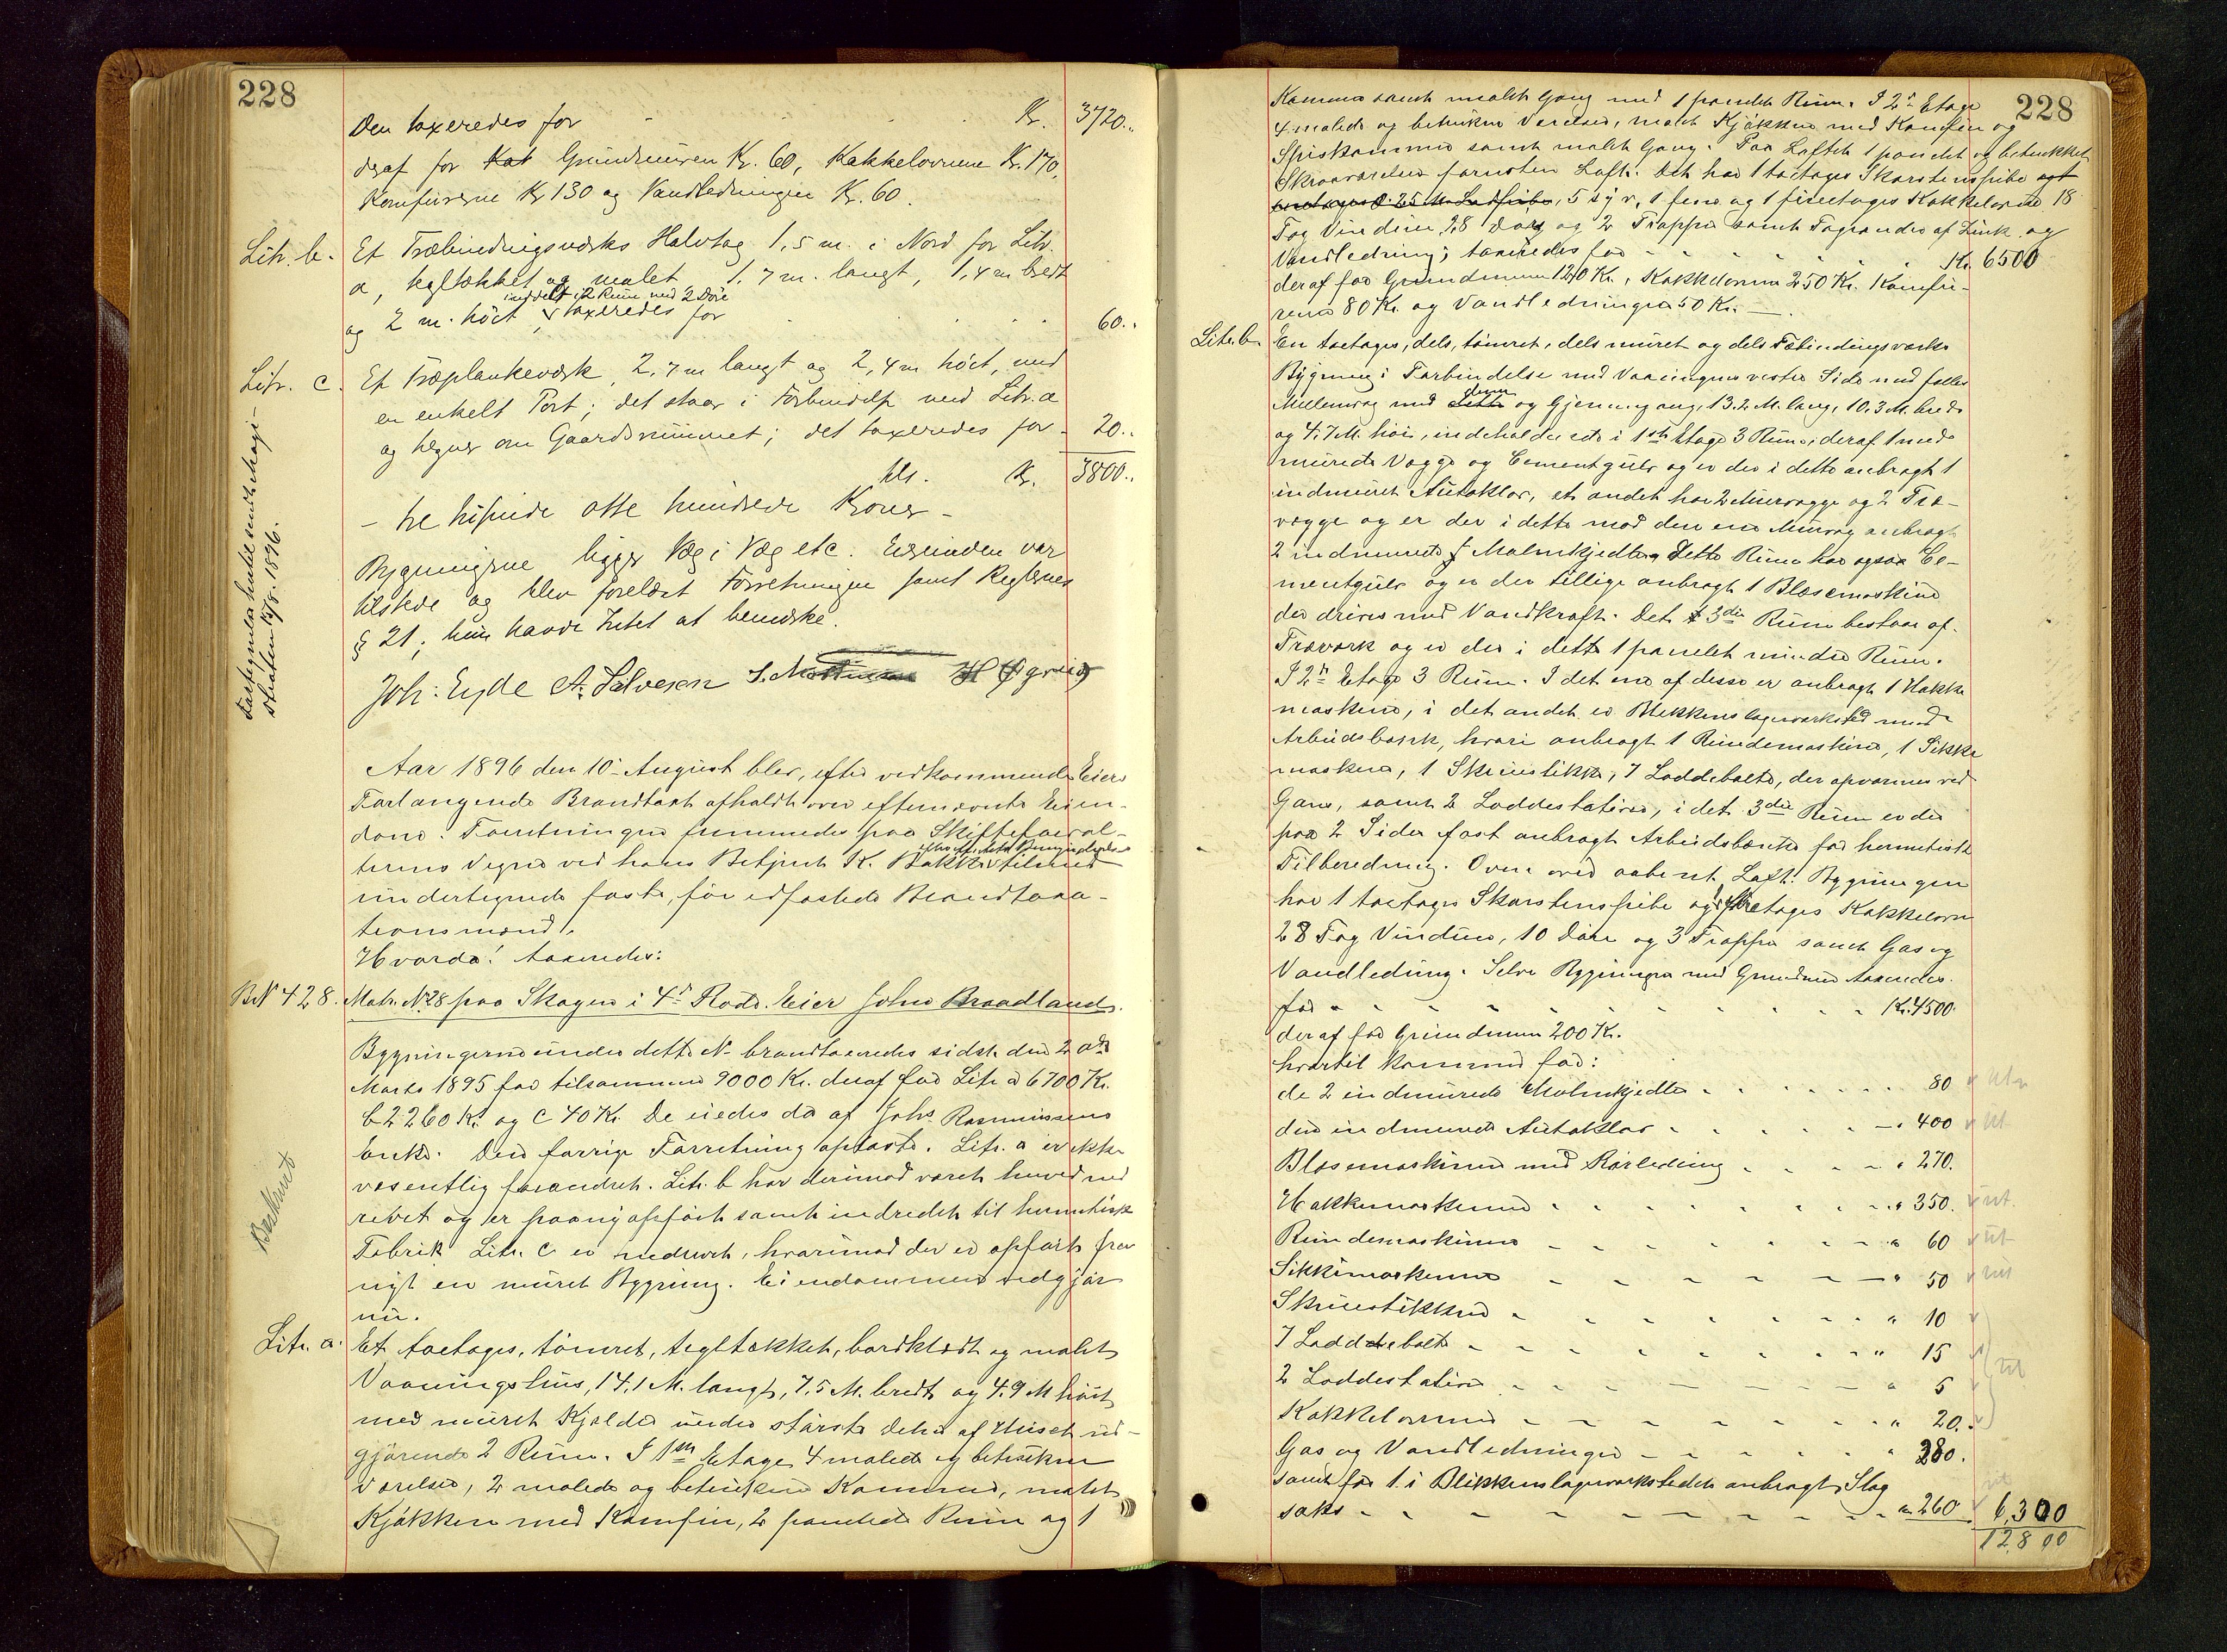 228
Den taxeredes for Kr. 3720..
deraf for Grundmuren Kr. 60, Kakkelovnene Kr. 170,
Komfurerne Kr 130 og Vandledningen Kr. 60.
Litr. b. Et Træbindingsværks Halvtag 1,5 m. i Nord for Litr.
a, tegltækket og malet 1.7 m. langt, 1,4 m bredt
inddelt i 2 Rum med 2 Døre
og 2 m. höit, taxeredes for 60..
Litr. c. Et Træplankeværk 2,7 m langt og 2,4 m höit, med
en enkelt Port; det staar i Forbindelse med Litr. a
og hegner om Gaardsrummet; det taxeredes for 20..
tils. Kr. 3800..
- tre tusinde otte hundrede Kroner -
Bygningerne ligger Væg i Væg etc. Eierinden var
tilstede og blev forelæst Forretningen samt Reglernes
§ 21; hun havde Intet at bemærke.
Joh: Eyde A. Salvesen
1896.
Aar 1896 den 10de August blev, efter vedkommende Eiers
Forlangende Brandtaxt afholdt over efternævnte Eien-
dom. Forretningen fremmedes paa Skifteforval-
terens Vegne ved hans Betjent K. Bakke tilmed
undertegnede faste, før edfæstede Brandtaxa-
tionsmænd.
Hvorda! taxeredes:
BN 428. Matr. N. 28 paa Skagen i 4de Rode. Eier John Braadland.
Bygningerne under dette N. brandtaxeredes sidst den 20de
Marts 1895 for tilsammen 9000 Kr. deraf for Litr a 6700 Kr.
b 2260 Kr. og c 40 Kr. De eiedes da af Johs. Rasmussens
Enke. Den forrige Forretning oplæstes. Litr. a er ikke
væsentlig forandret. Litr. b har derimod været heved ned
revet og er paany opført samt indredet til hermetisk
Fabrik. Litr. c er nedrevet, hvorimod der er opført fra
nyt en muret Bygning. Eiendommen udgjør
nu.
Bekant
Litr. a. Et toetages, tömret, tegltækket, bordklædt og malet
Vaaningshus, 14,1 M. langt, 7,5 M. bredt og 4,9 M höit
med muret Kjælder under største Delen af Huset ud-
gjörende 2 Rum. I 1ste Etage 4 malede og betrukne
Værelser, 2 malede og betrukne Kammer, malet
Kjøkken med Komfur, 2 panelede Rum og 1
228
Kammer samt malet Gang med 1 panelet Rum. I 2den Etage
4 malede og betrukne Værelser, malet Kjøkken med Komfur og
Spiskammer samt malet Gang. Paa Loftet 1 panelet og betrukket
Skraaværelse foruden Loft. Det har 1 toetages Skorstenspibe
5 syv, 1 fem og 1 fireetages Kakkelovne 18
Fag Vinduer, 28 Døre og 2 Trapper samt Tagrender af Zink og
Vandledning; taxeredes for Kr. 6500
deraf for Grundmuren 1240 Kr., Kakkelovnene 250 Kr. Komfu-
rerne 80 Kr. og Vandledningen 50 Kr.
Litr. b. En toetages, dels tömret, dels muret og dels Fæbindingsværks
Bygning i Forbindelse med Vaaningens vestre Side med fælles
Mellemvæg med denne og Gjennemgang, 13.2 M. lang, 10.3 M. bred
og 4.7 M. höi, indeholdende i 1ste Etage 3 Rum, deraf 1 med
murede Vægge og Cementgulv og er der i dette anbragt 1
indmuret Autoklav, et andet har 2 Murvægge og 2 Træ-
vægge og er der i dette mod den ene Murvæg anbragt
2 indmurede Malmkjedler. Dette Rum har ogsaa Ce-
mentgulv og er der tillige anbragt 1 Blæsemaskine
der drives med Vandkraft. Det 3die Rum bestaar af
Træværk og er der i dette 1 panelet mindre Rum.
I 2den Etage 3 Rum. I det ene af disse er anbragt 1 Hakke
maskine, i det andet er Blekkenslagerværksted med
Arbeidsbænk, hvori anbragt 1 Rundemaskine, 1 Sikke
maskine, 1 Skruestikke, 7 Loddebolte, der opvarmes ved
Gas, samt 2 Loddestativer, i det 3die Rum er der
paa 2 Sider fast anbragt Arbeidsbænke for hermetisk
Tilberedning. Oven over aabent Loft. Bygningen
har 1 toetages Skorstenspibe og 1 etages Kakkelovn
28 Fag Vinduer, 10 Døre og 3 Trapper samt Gas og
Vandledning. Selve Bygningen med Grundmur taxeredes
for Kr. 4500.
deraf for Grundmuren 200 Kr.
hvortil kommer for:
de 2 indmurede Malmkjedler 80
den indmurede Autoklav 400
Blæsemaskinen med Rørledning 270.
Hakkemaskinen 350.
Rundemaskinen 60
Sikkemaskinen 50
Skruestikken 10
7 Loddebolte 15
2 Loddestativer 5
Kakkelovnen 20.
Gas og Vandledningen 280.
samt for 1 i Blikkenslagerværkstedet anbragt Slag
saks 260 6,300
12,800